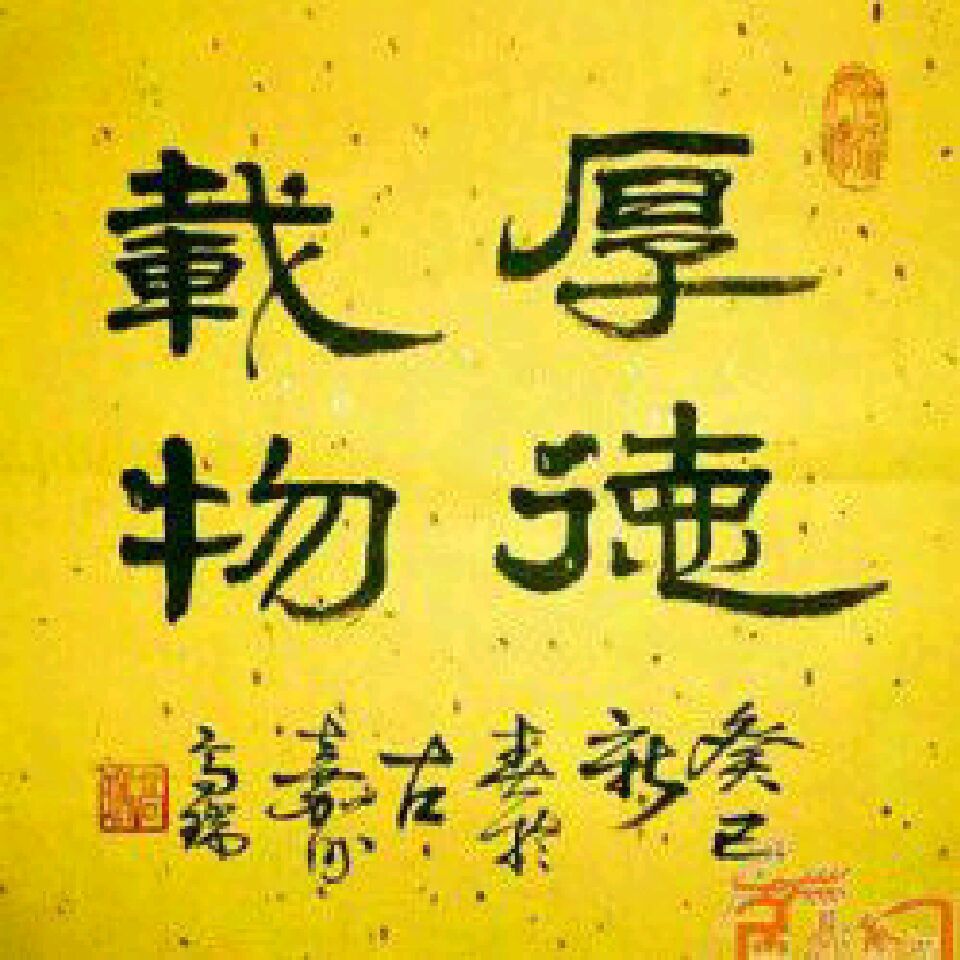 厚德
載物
癸巳
新
春於
古
嘉州
高瑞